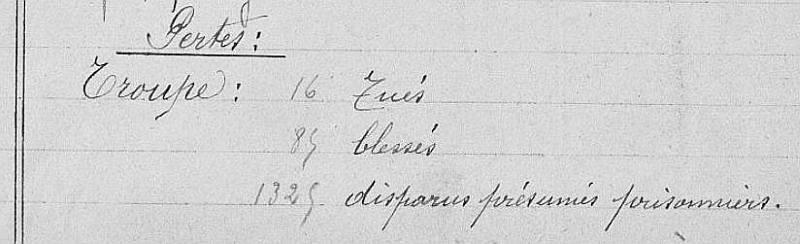 Pertes :
Troupe : 16 Tués
85 blessés
1325 disparus présumés prisonniers.